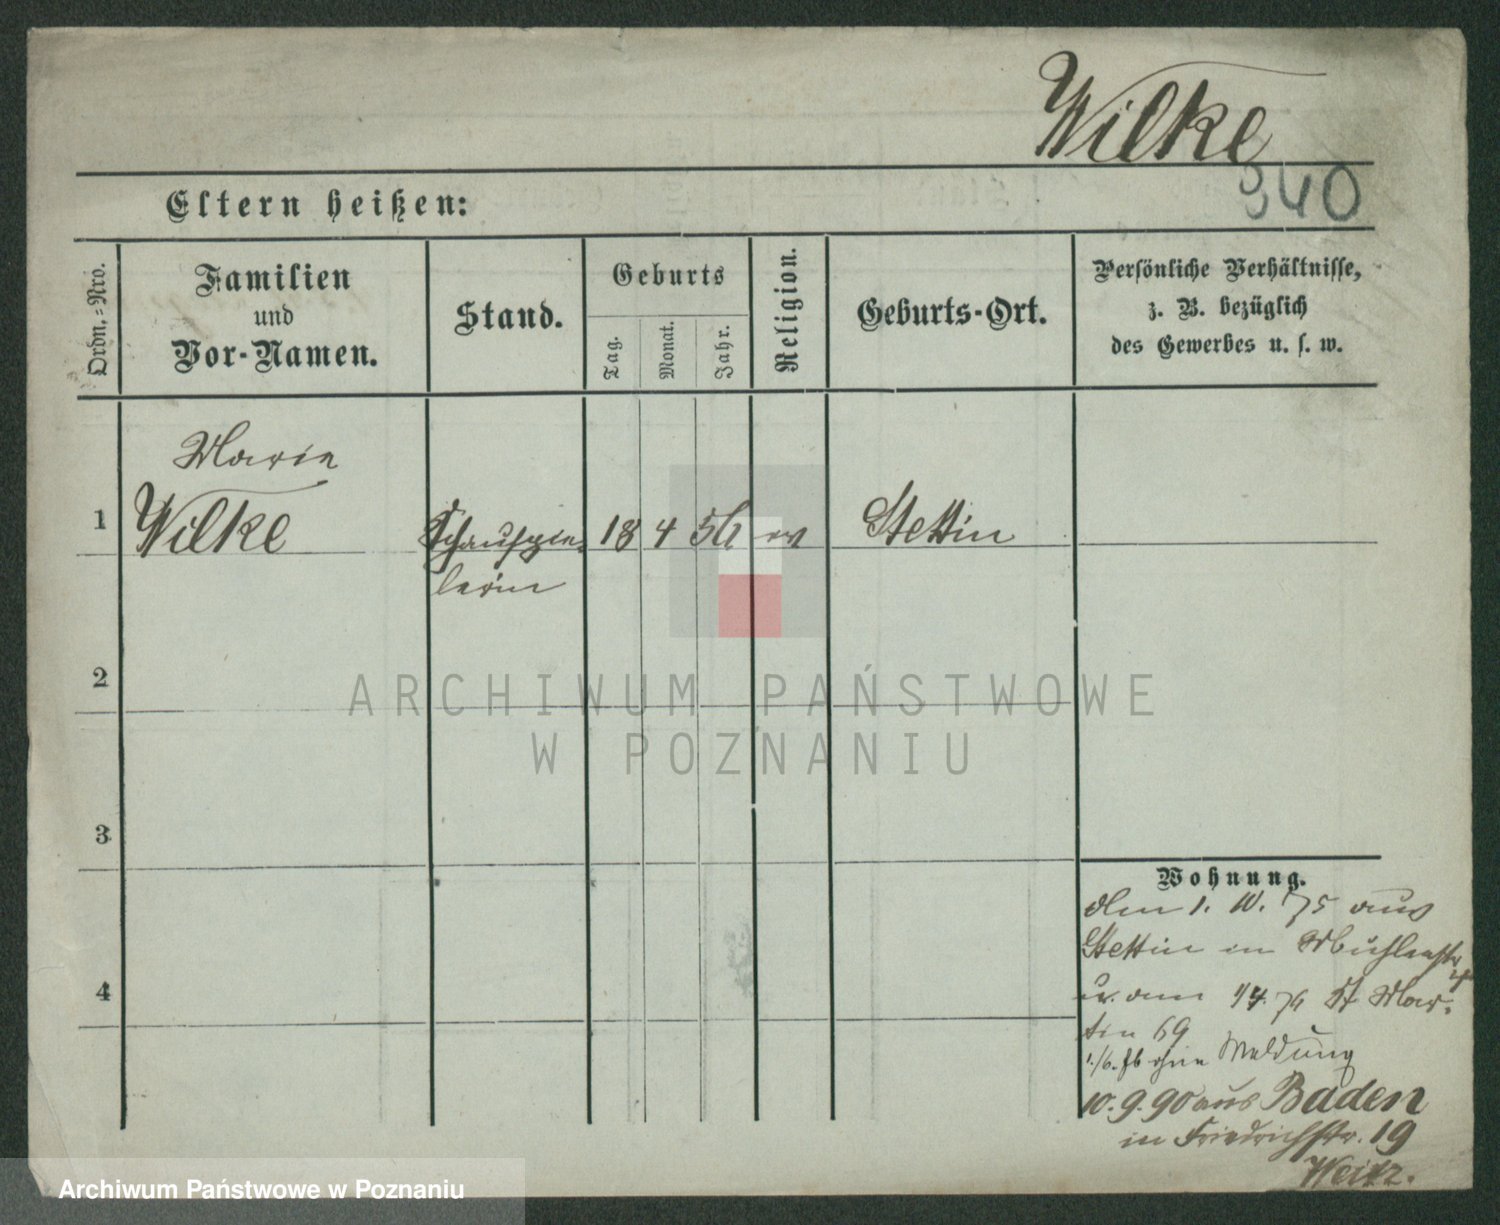 Wilke
340
Eltern heißen:
Ordn.=Nro.
Familien
und
Vor-Namen.
Stand.
Geburts
Tag.
Monat.
Jahr.
Religion.
Geburts-Ort.
Persönliche Verhältnisse,
z. B. bezüglich
des Gewerbes u. s. w.
Marie
1 Wilke Schauspie- 18 4 54 ev Stettin
lerin
2
3
4
Wohnung.
den 1. 10. 75 aus
Stettin in Mühlenstr
u. am 1/4. 76 St Mar-
tin 69
ohne Meldung
10.9.90 aus Baden
in Friedrichstr. 19
ARCHIWUM PAŃSTWOWE
W POZNANIU
Archiwum Państwowe w Poznaniu